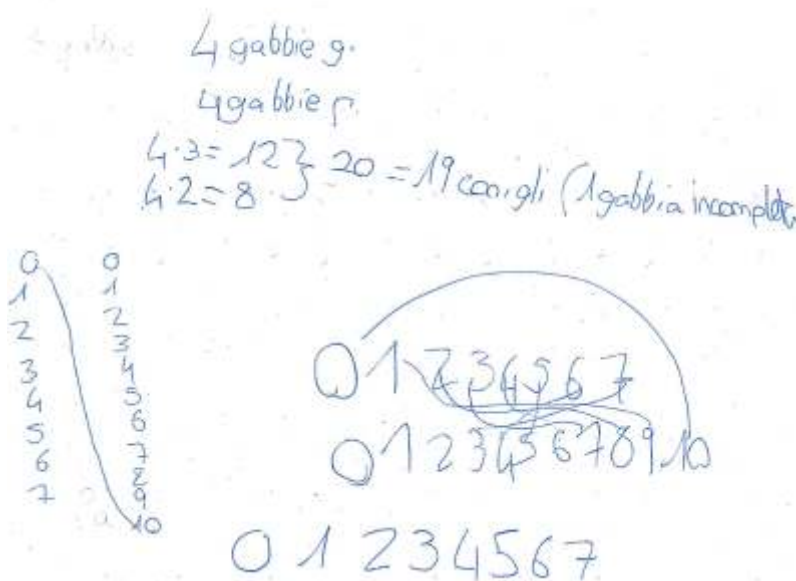 4 gabbie g.
4 gabbie p.
4·3=12 } 20 = 19 conigli (1 gabbia incompleta
4·2=8
0 0
1 1
2 2
3 3
4 4
5 5
6 6
7 7
8
9
10
0 1 2 3 4 5 6 7
0 1 2 3 4 5 6 7 8 9 10
0 1 2 3 4 5 6 7